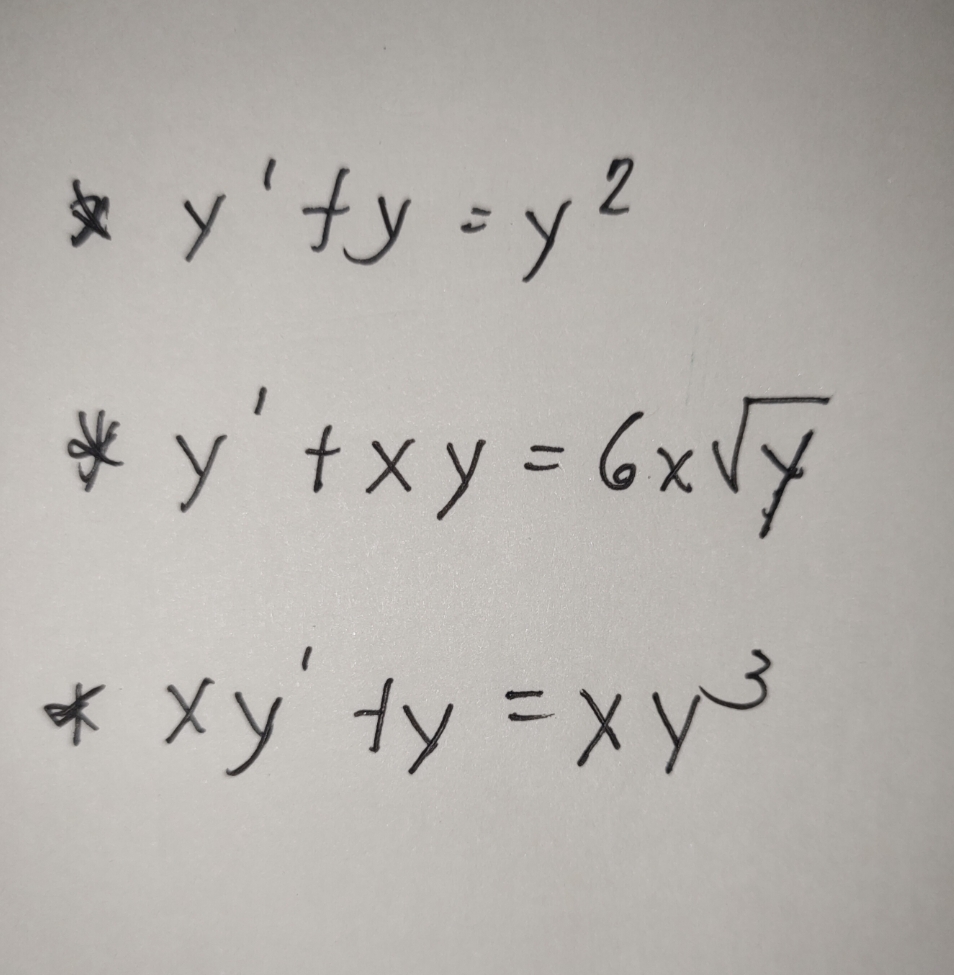 * y' + y = y²
* y' + xy = 6x√y
* xy' + y = xy³